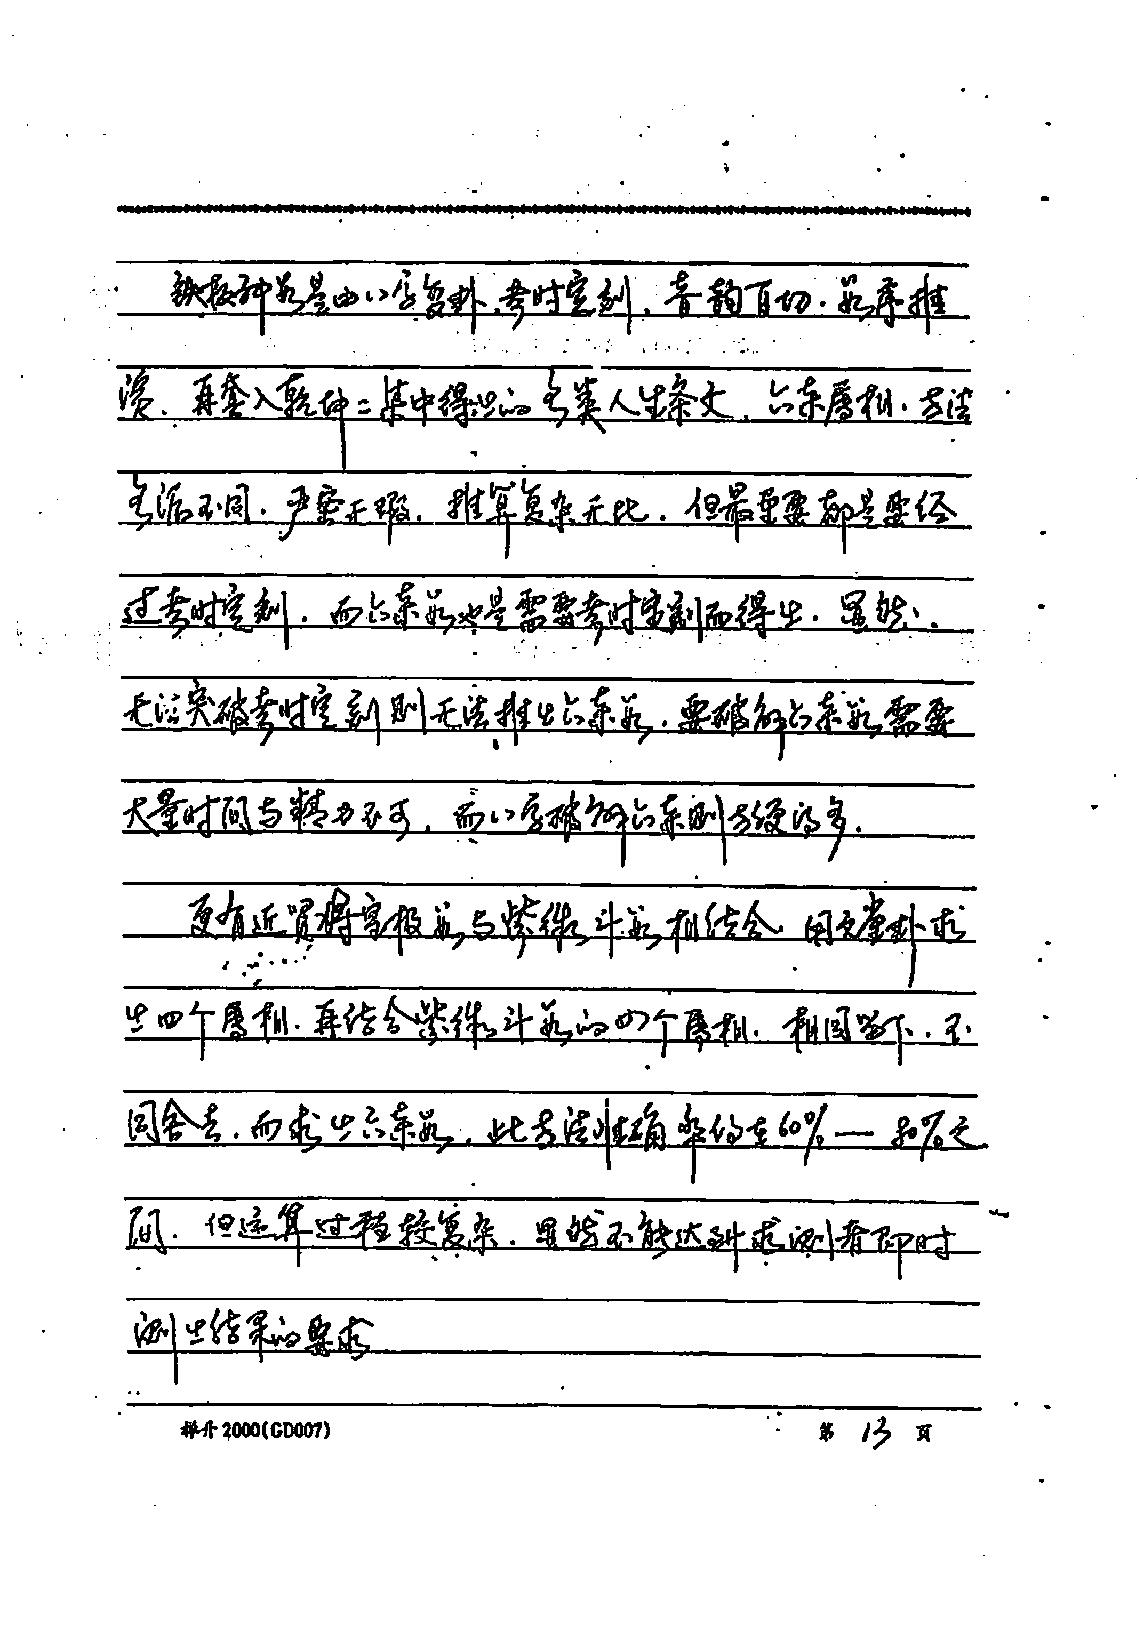 铁板神数是由八字复卦、考时定刻、音韵百切、数序推
演、再套入乾坤二集中得出的各类人生条文、六亲属相、方法
各派不同、严密无瑕、推算复杂无比、但最重要都是要经
过考时定刻、而六亲数也是需要考时定刻而得出、显然、
无法突破考时定刻则无法推出六亲数、要破解六亲数需要
大量时间与精力不可、而八字破解六亲则方便得多、
更有近贤将宫极数与紫微斗数相结合、因元堂卦求
出四个属相、再结合紫微斗数的四个属相、相同留下、不
同舍去、而求出六亲数、此方法准确率约在60%—80%之
间、但运算过程较复杂、显然不能达到求测者即时
测出结果的要求
2000(GD007) 第 13 页